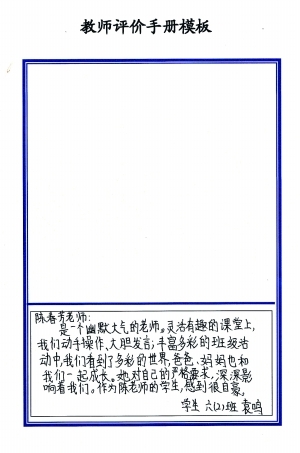 教师评价手册模板
陈春芳老师：
是一个幽默大气的老师。灵活有趣的课堂上，
我们动手操作、大胆发言；丰富多彩的班级活
动中，我们看到了多彩的世界，爸爸、妈妈也和
我们一起成长。她对自己的严格要求，深深影
响着我们。作为陈老师的学生，感到很自豪。
学生 六(2)班 袁鸣